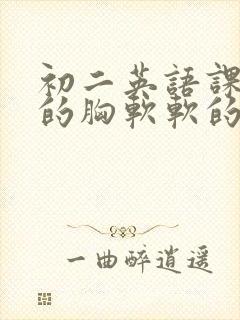 初二英語課
的胸軟軟的
一曲醉逍遥